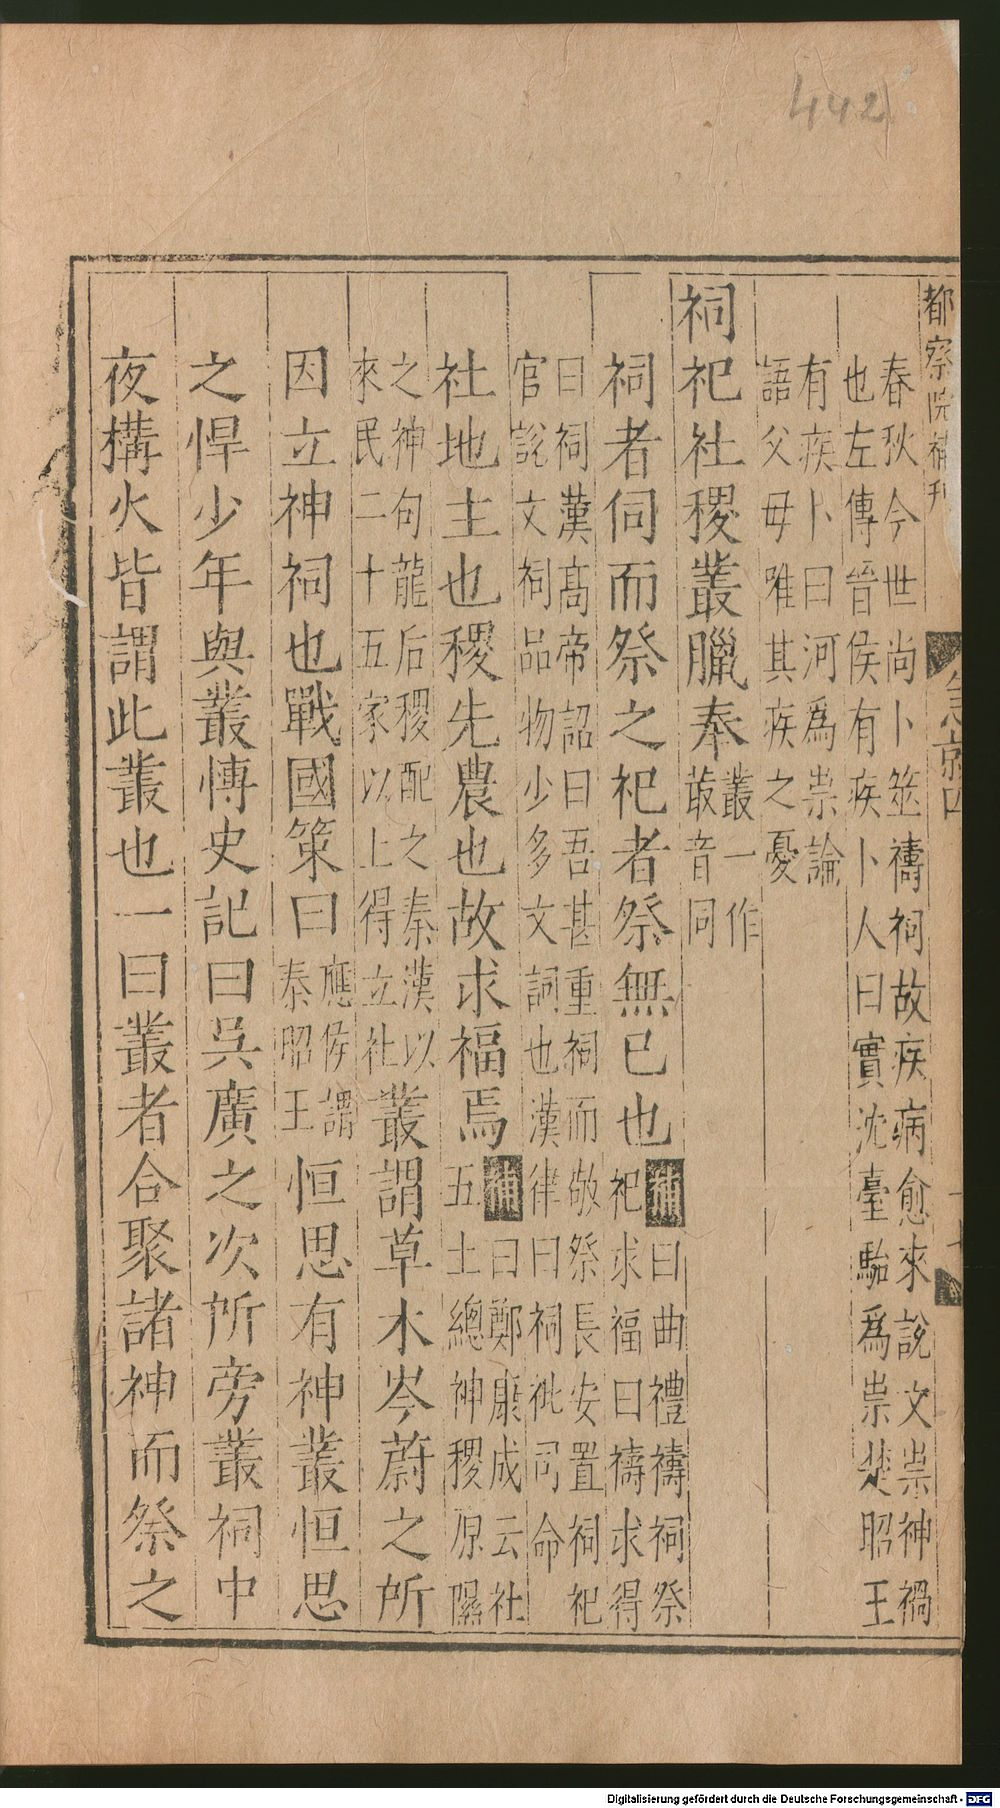 442
都察院補刊
急就四
春秋今世尚卜筮禱祠故疾病愈來說文祟神禍
也左傳晉侯有疾卜人曰實沈臺駘爲祟楚昭王
有疾卜曰河爲祟論
語父母唯其疾之憂
祠祀社稷叢臘奉
叢一作
菆音同
祠者伺而祭之祀者祭無已也
補曰曲禮禱祠祭
祀求福曰禱求得
曰祠漢高帝詔曰吾甚重祠而敬祭長安置祠祀
官說文祠品物少多文詞也漢律曰祠祉司命
社地主也稷先農也故求福焉
補曰鄭康成云社
五土總神稷原隰
之神句龍后稷配之秦漢以
來民二十五家以上得立社
叢謂草木岑蔚之所
因立神祠也戰國策曰
應侯謂
秦昭王
恒思有神叢恒思
之悍少年與叢愽史記曰吳廣之次所旁叢祠中
夜構火皆謂此叢也一曰叢者合聚諸神而祭之
Digitalisierung gefördert durch die Deutsche Forschungsgemeinschaft - DFG